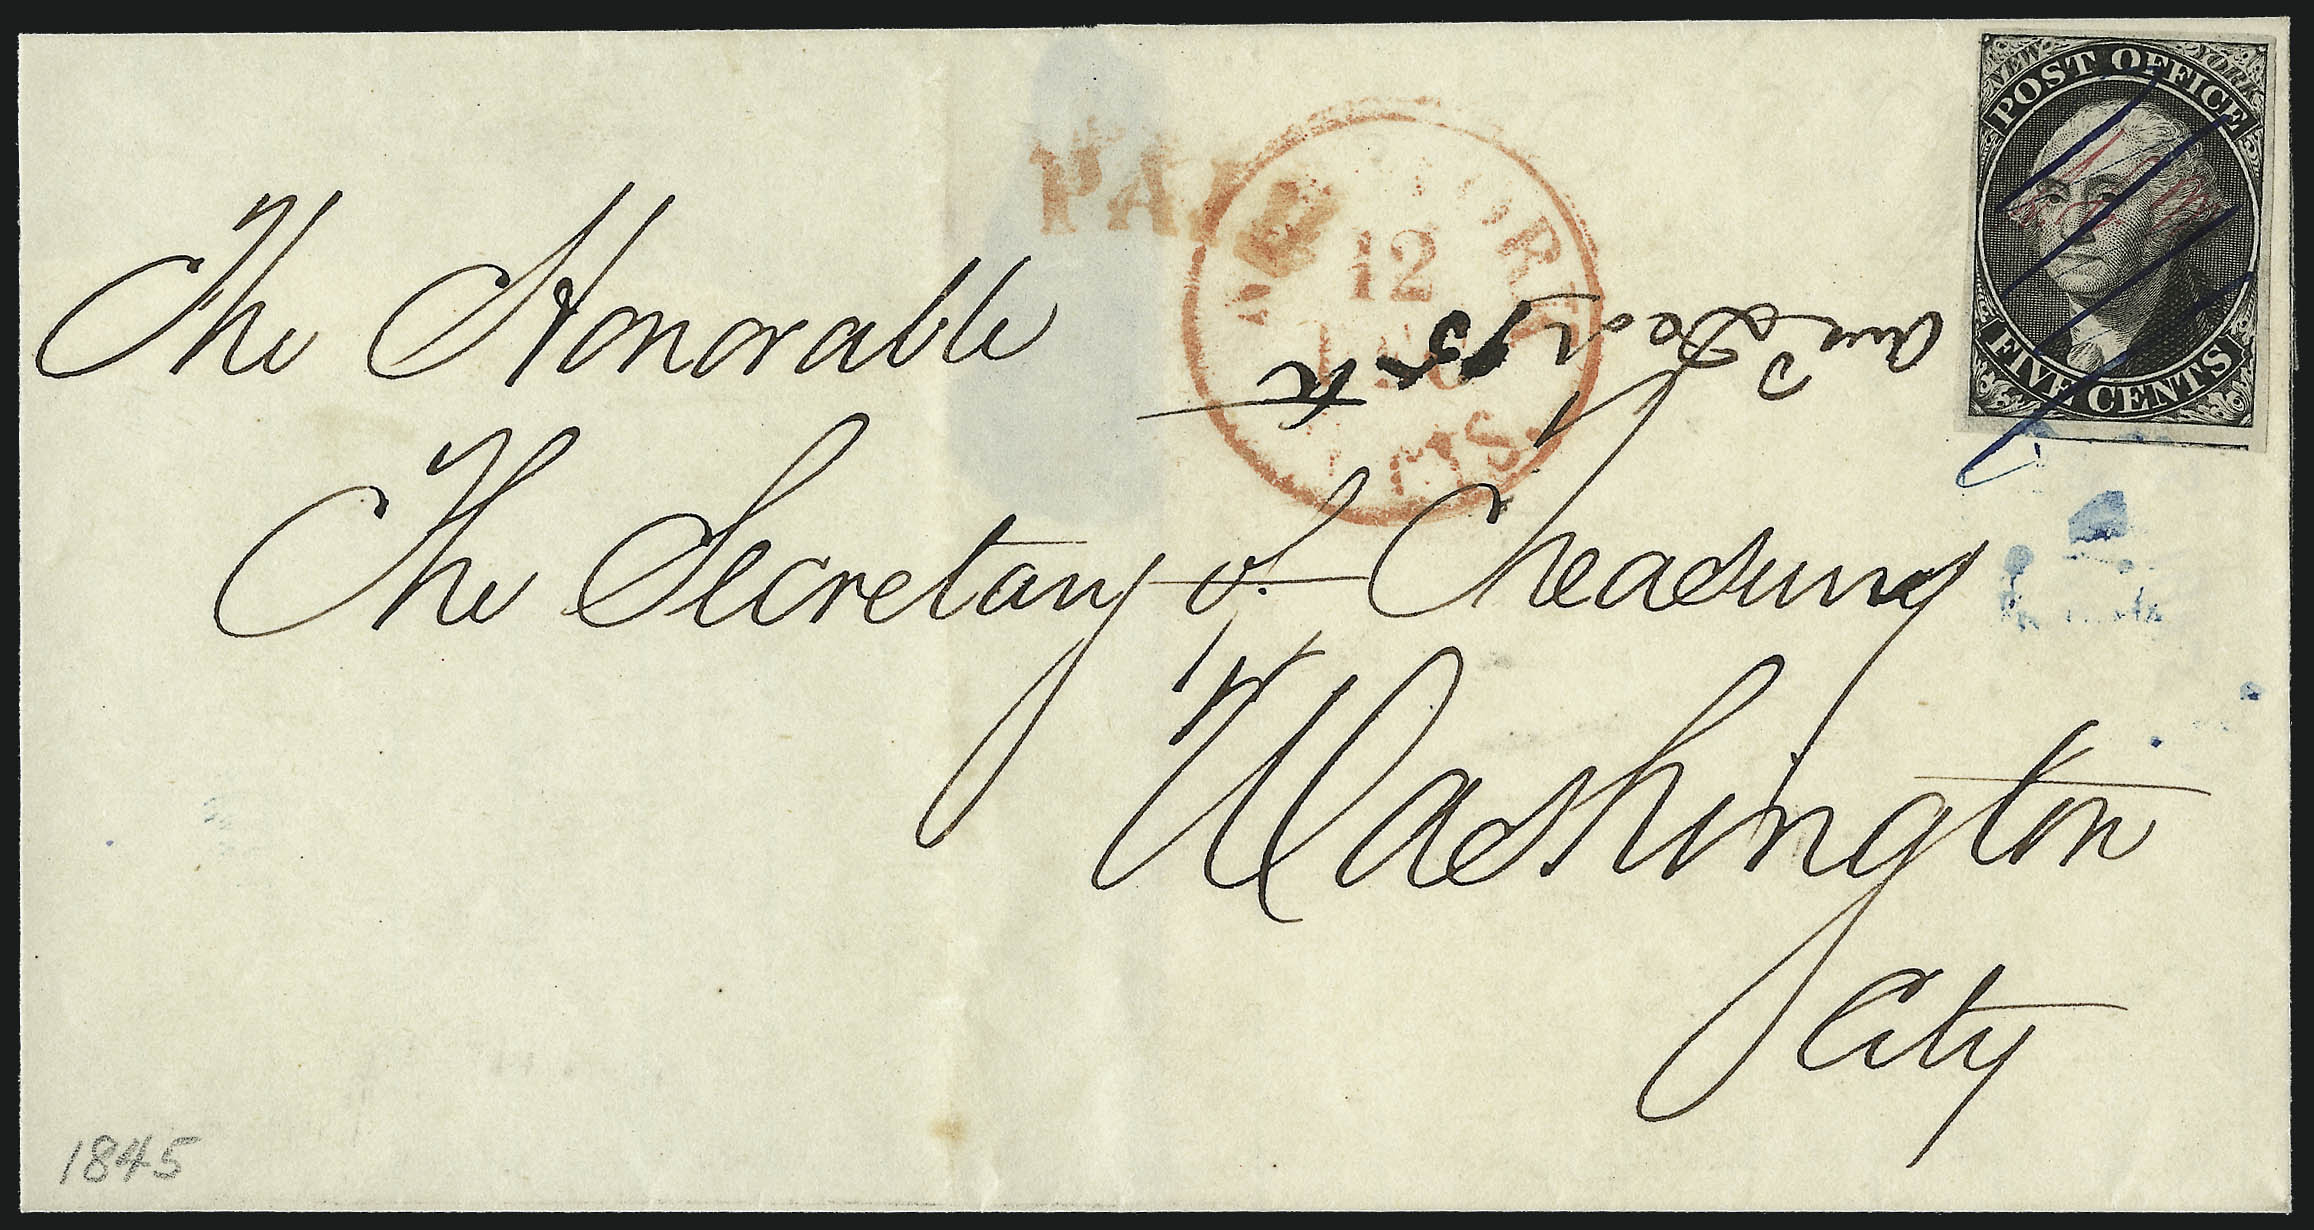 NEW YORK
POST OFFICE
FIVE CENTS
PAID
NEW YORK
12
DEC
CTS.
The Honorable
The Secretary of Treasury
Washington
City
1845